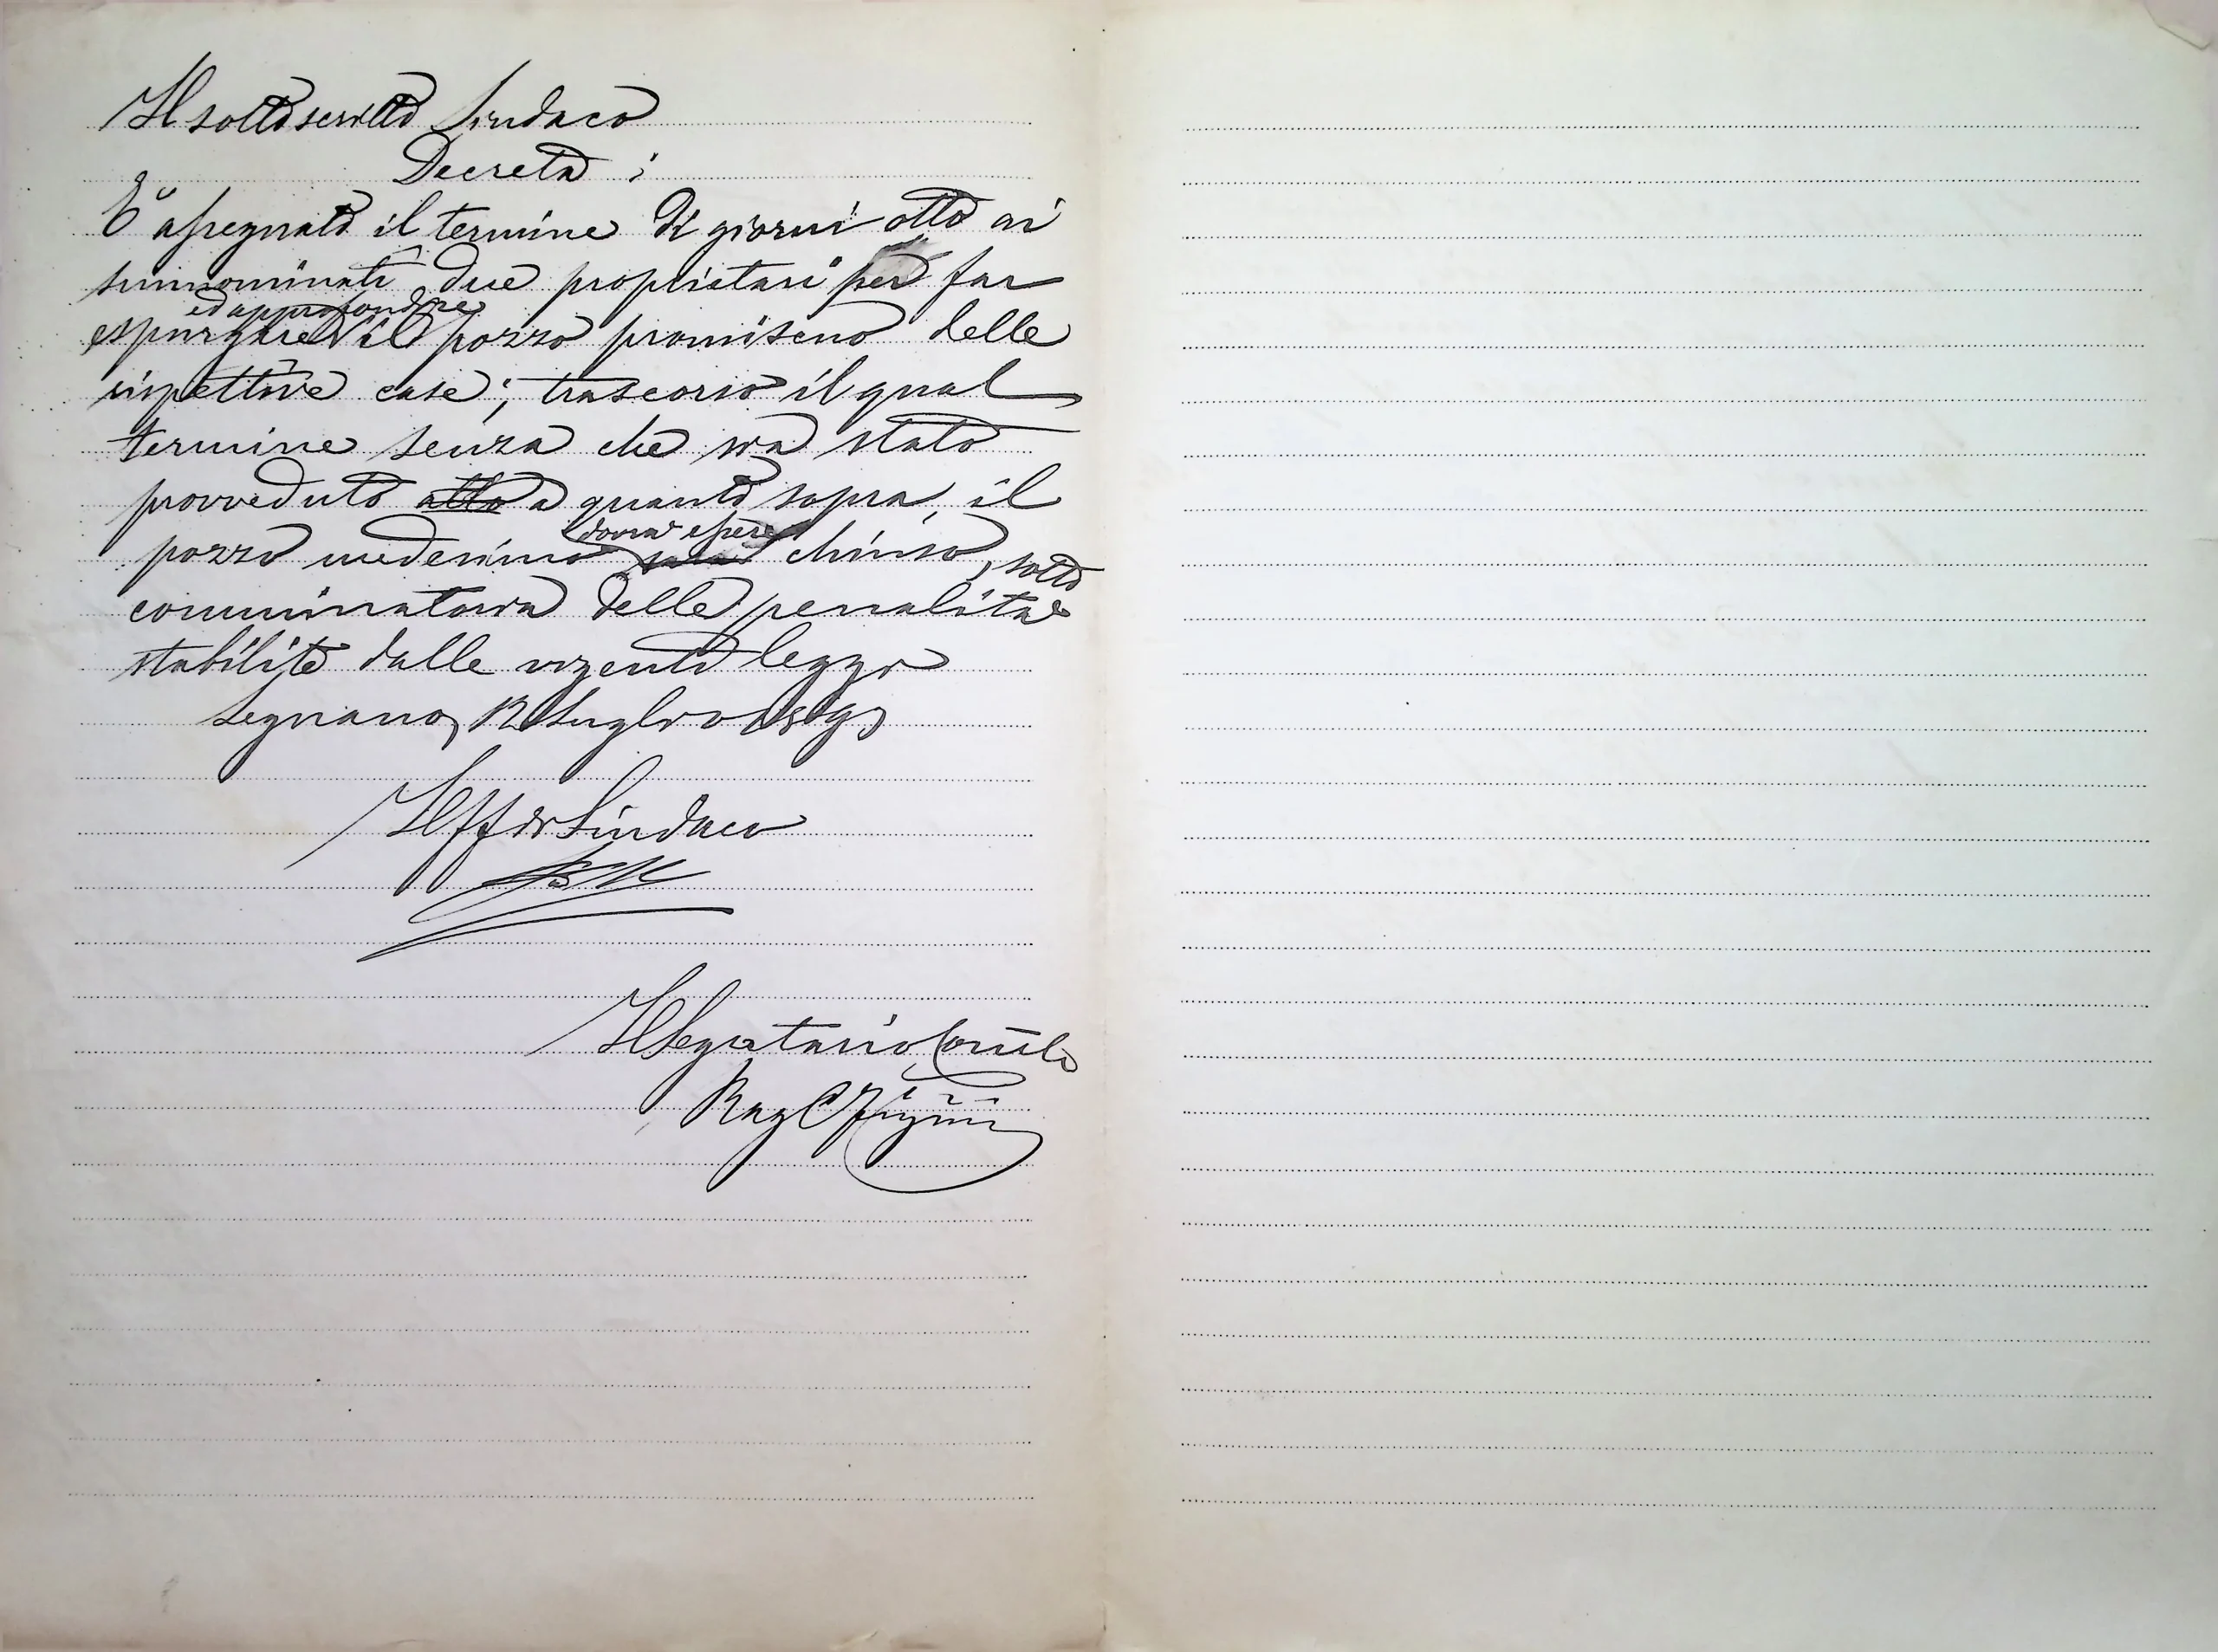 Il sottoscritto Sindaco
Decreta:
E' assegnato il termine di giorni otto ai
sunnominati due proprietari per far
ed approfondire
espurgare il pozzo promiscuo delle
rispettive case; trascorso il qual
termine senza che sia stato
provveduto alla a quanto sopra, il
dovrà essere
pozzo medesimo sarà chiuso, sotto
comminatoria delle penalità
stabilite dalle vigenti leggi
Legnano, 12 Luglio
Il ff di Sindaco
Il Segretario Com̄le
Rag C